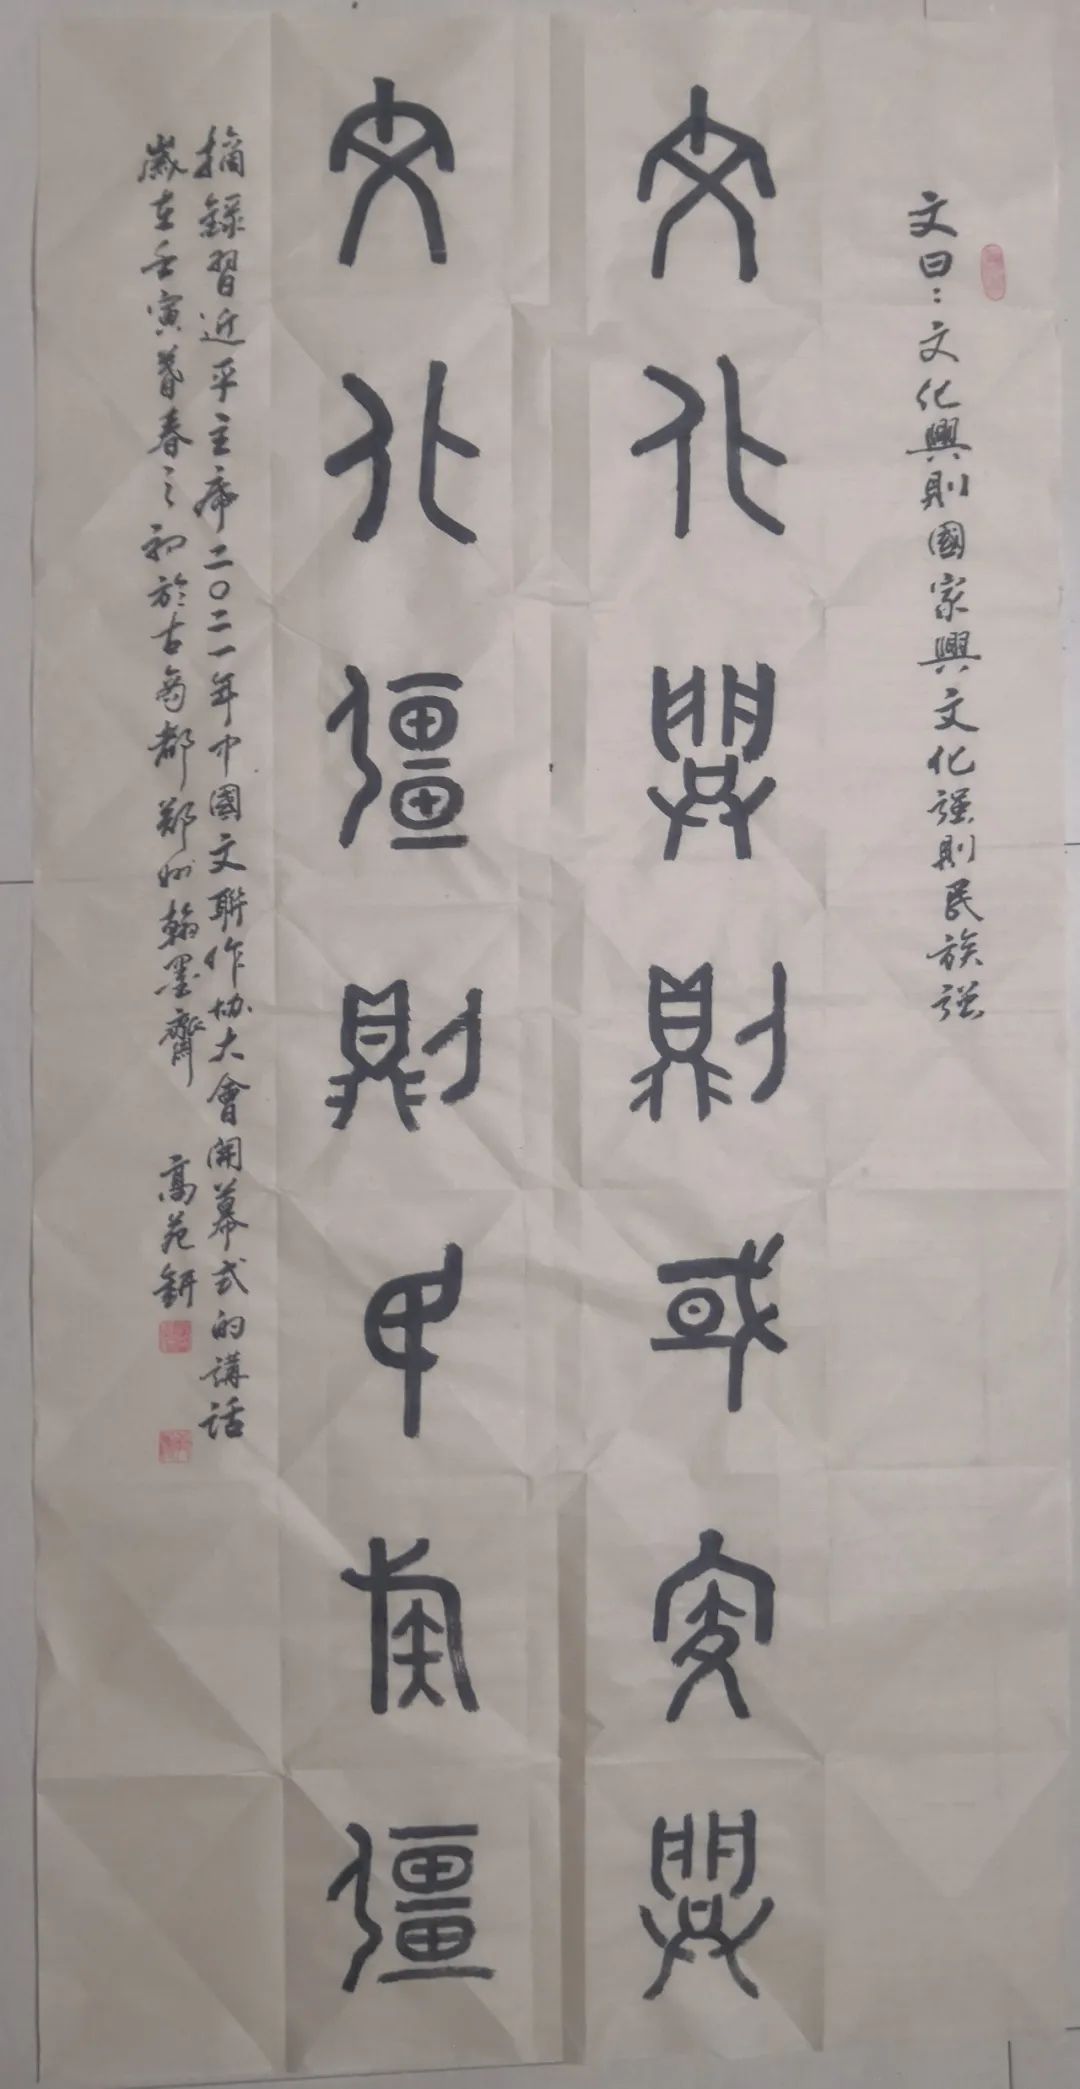 文曰：文化興則國家興文化强則民族强
文化興則或家興
文化彊則民族彊
摘錄習近平主席二〇二一年中國文聯作協大會開幕式的講話
歲在壬寅暮春之初於古商都鄭州翰墨齋 高苑鈃